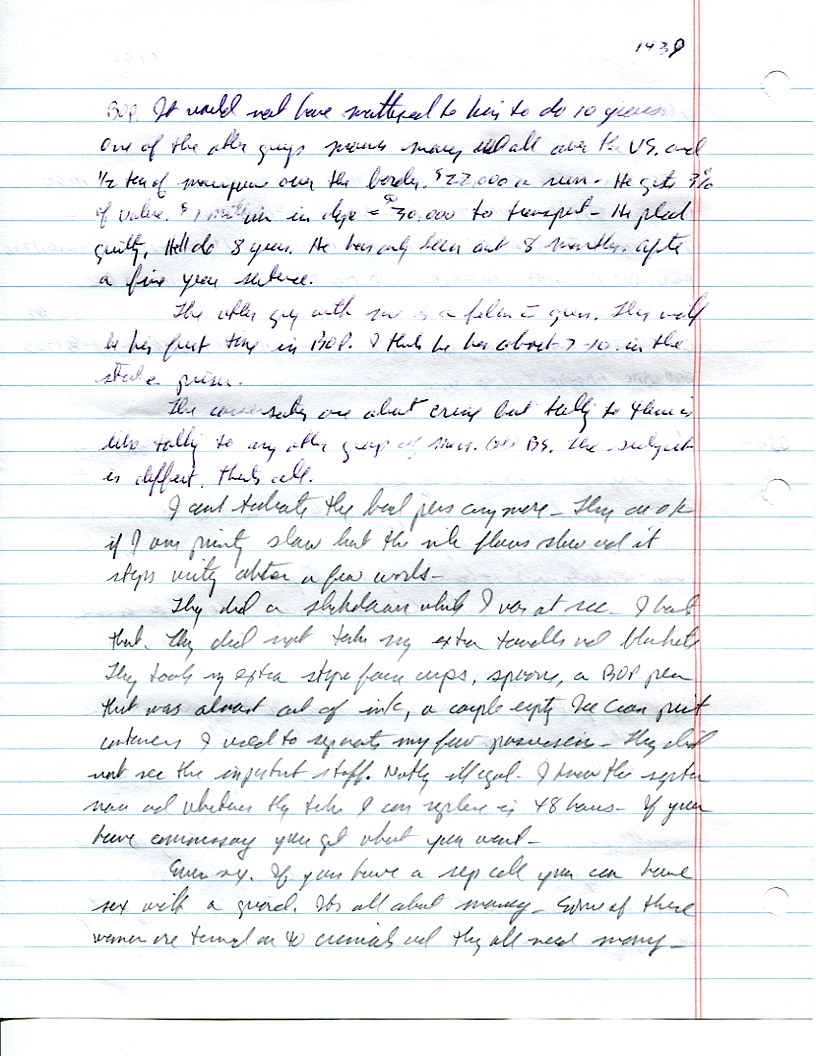 1439
BOP. It would not have mattered to him to do 10 years
One of the other guys moves money all over the US. and
1/2 ton of over the border. $22,000 a run - He gets 3%
of value. $1 million in dope = $30,000 to transport - He pled
guilty. He'll do 8 years. He has only been out 8 months. after
a five year sentence.
The other guy with me is a felon c guns. This will
be his first time in BOP. I think he has about 7-10 in the
state prison.
The conversation are about crime but talking to them is
like talking to any other group of men. BS. The subject
is different. That's all.
I can't tolerate the pens anymore - They are ok
if I am printing slow but the ink flows slow and it
stops writing after a few words -
They did a shakedown while I was at rec. I hate
that. They did not take my extra towells and blankets
They took my extra styrofoam cups, spoons, a BOP pen
that was almost out of ink, a couple empty Ice Cream pint
containers I used to separate my few possession - They did
not see the important stuff. Nothing illegal. I know the system
now and whatever they take I can replace in 48 hours - If you
have commissary you get what you want -
Even sex. If you have a cell you can have
sex with a guard. It's all about money - Some of these
women are turned on to criminals and they all need money -